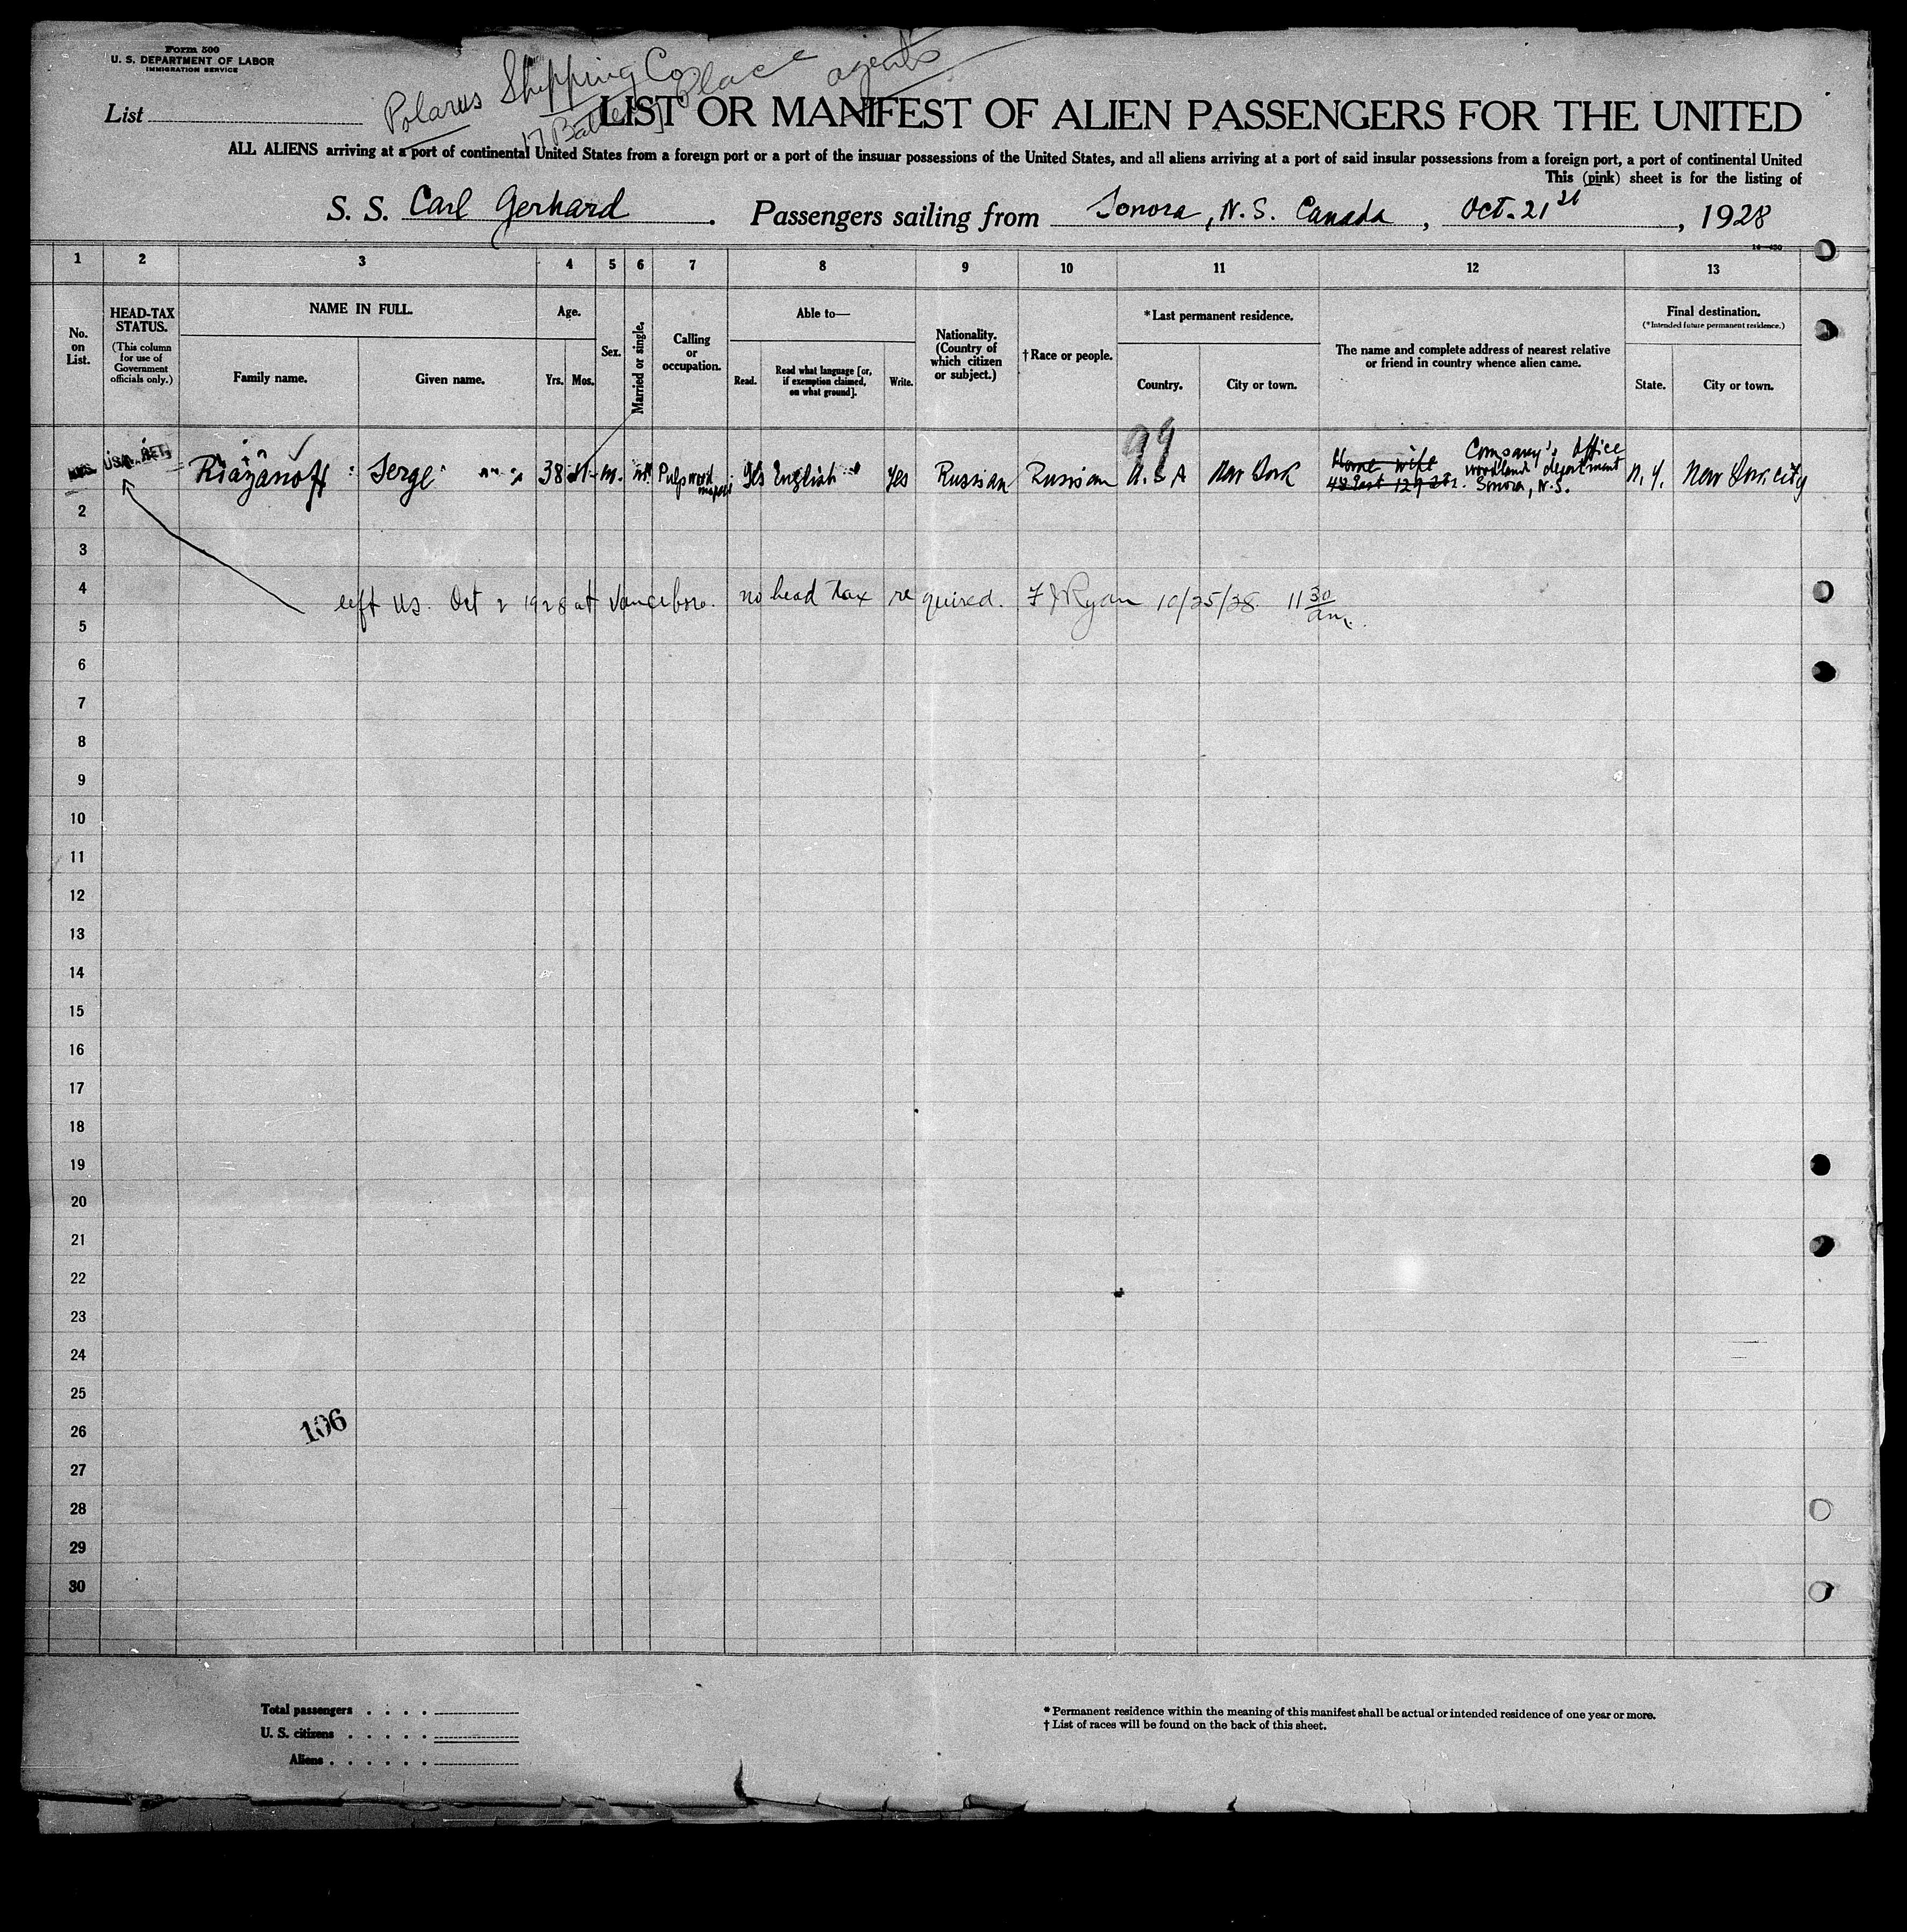 Form 500
U. S. DEPARTMENT OF LABOR
IMMIGRATION SERVICE
Polarus Shipping Co. agents
17 Battery Place
List
LIST OR MANIFEST OF ALIEN PASSENGERS FOR THE UNITED
ALL ALIENS arriving at a port of continental United States from a foreign port or a port of the insular possessions of the United States, and all aliens arriving at a port of said insular possessions from a foreign port, a port of continental United
This (pink) sheet is for the listing of
S. S. Carl Gerhard . Passengers sailing from Sonora, N.S. Canada , Oct. 21st , 1928
14—430
1 2 3 4 5 6 7 8 9 10 11 12 13
No. on List.
HEAD-TAX STATUS.
(This column for use of Government officials only.)
NAME IN FULL.
Family name. Given name.
Age.
Yrs. Mos.
Sex.
Married or single.
Calling or occupation.
Able to—
Read. Read what language [or, if exemption claimed, on what ground]. Write.
Nationality. (Country of which citizen or subject.)
†Race or people.
*Last permanent residence.
Country. City or town.
The name and complete address of nearest relative or friend in country whence alien came.
Final destination.
(*Intended future permanent residence.)
State. City or town.
99
USA. RET.
Riazanoff Serge 38 11 m. m Pulpwood Yes English Yes Russian Russian U.S.A New York
Home wife
48 East 129 St.
Company's Office
woodland department
Sonora, N.S.
N.Y. New York city
2
3
4
left US. Oct 2 1928 at Vanceboro. no head tax required. F J Ryan 10/25/28. 11 30 am.
5
6
7
8
9
10
11
12
13
14
15
16
17
18
19
20
21
22
23
24
25
26
106
27
28
29
30
Total passengers . . . .
U. S. citizens . . . . .
Aliens . . . . . .
* Permanent residence within the meaning of this manifest shall be actual or intended residence of one year or more.
† List of races will be found on the back of this sheet.